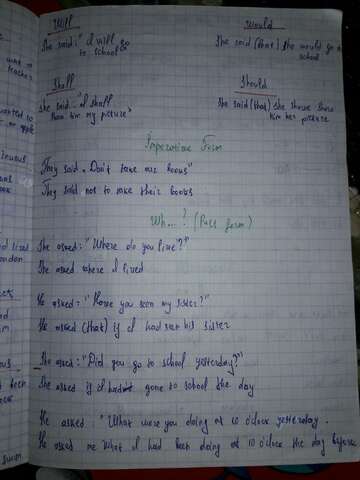 Will Would
She said: "I will go to school She said (that) she would go to school
Shall Should
She said "I shall show him my picture" She said (that) she should show him her picture
Imperative Form
They said "Don't take our books"
They said not to take their books
Wh...? (Past form)
She asked: "Where do you live?"
She asked where I lived
He asked: "Have you seen my sister?"
He asked (that) if I had seen his sister
She asked: "Did you go to school yesterday?"
She asked if I had gone to school the day
He asked: "What were you doing at 10 o'clock yesterday.
He asked me what I had been doing at 10 o'clock the day before